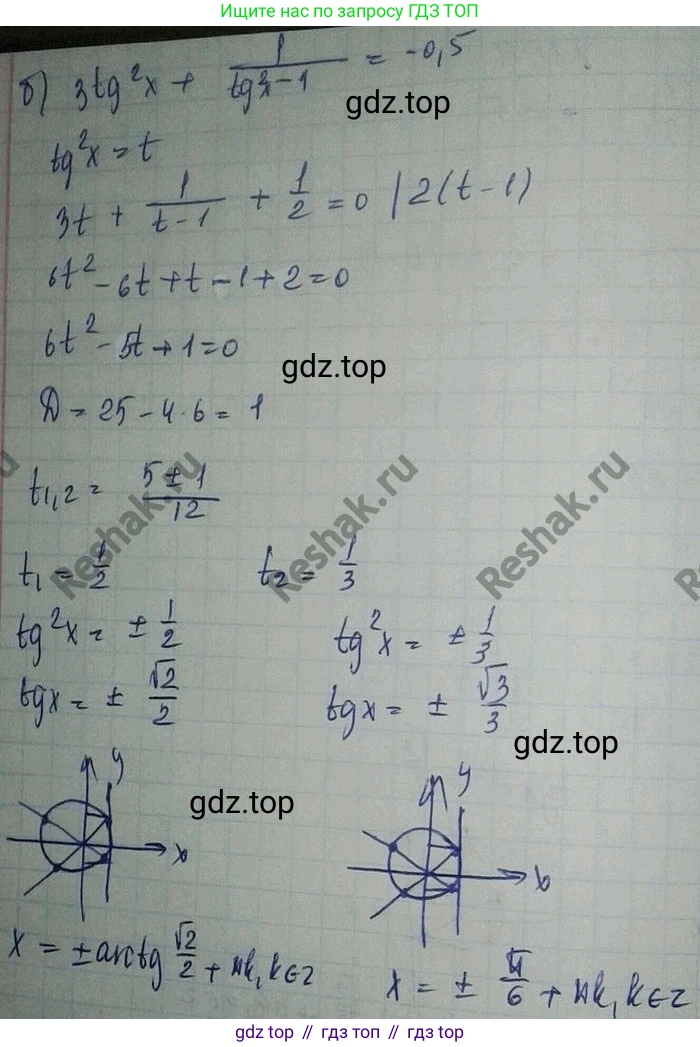 Ищите нас по запросу ГДЗ ТОП
б) 3tg²x + 1/(tg²x - 1) = -0,5
gdz.top
tg²x = t
3t + 1/(t-1) + 1/2 = 0 | 2(t-1)
6t² - 6t + t - 1 + 2 = 0
6t² - 5t + 1 = 0
gdz.top
D = 25 - 4·6 = 1
t1,2 = (5 ± 1)/12
Reshak.ru
Reshak.ru
t1 = 1/2 t2 = 1/3
tg²x = ± 1/2 tg²x = ± 1/3
tgx = ± √2/2 tgx = ± √3/3
gdz.top
gdz.top
y y
x x
x = ± arctg √2/2 + πk, k∈z
x = ± π/6 + πk, k∈z
gdz.top // гдз.топ // gdz.top // гдз.топ // gdz.top